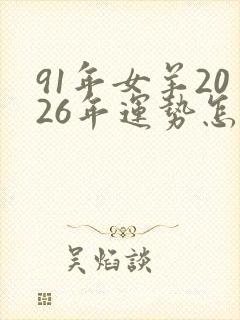 91年女羊20
26年運勢怎
吴焰談